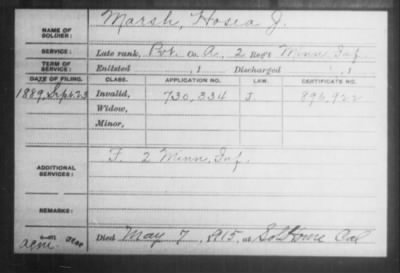 NAME OF SOLDIER: Marsh, Hosea J.
SERVICE: Late rank, Pvt. Co. A, 2 Reg't Minn Inf.
TERM OF SERVICE: Enlisted , 1 Discharged , 1
DATE OF FILING. CLASS. APPLICATION NO. LAW. CERTIFICATE NO.
1889, Sept 23 Invalid, 730,334 J. 896,922
Widow,
Minor,
ADDITIONAL SERVICES: F. 2 Minn. Inf.
REMARKS:
Died May 7, 1915, at Sol Home Cal